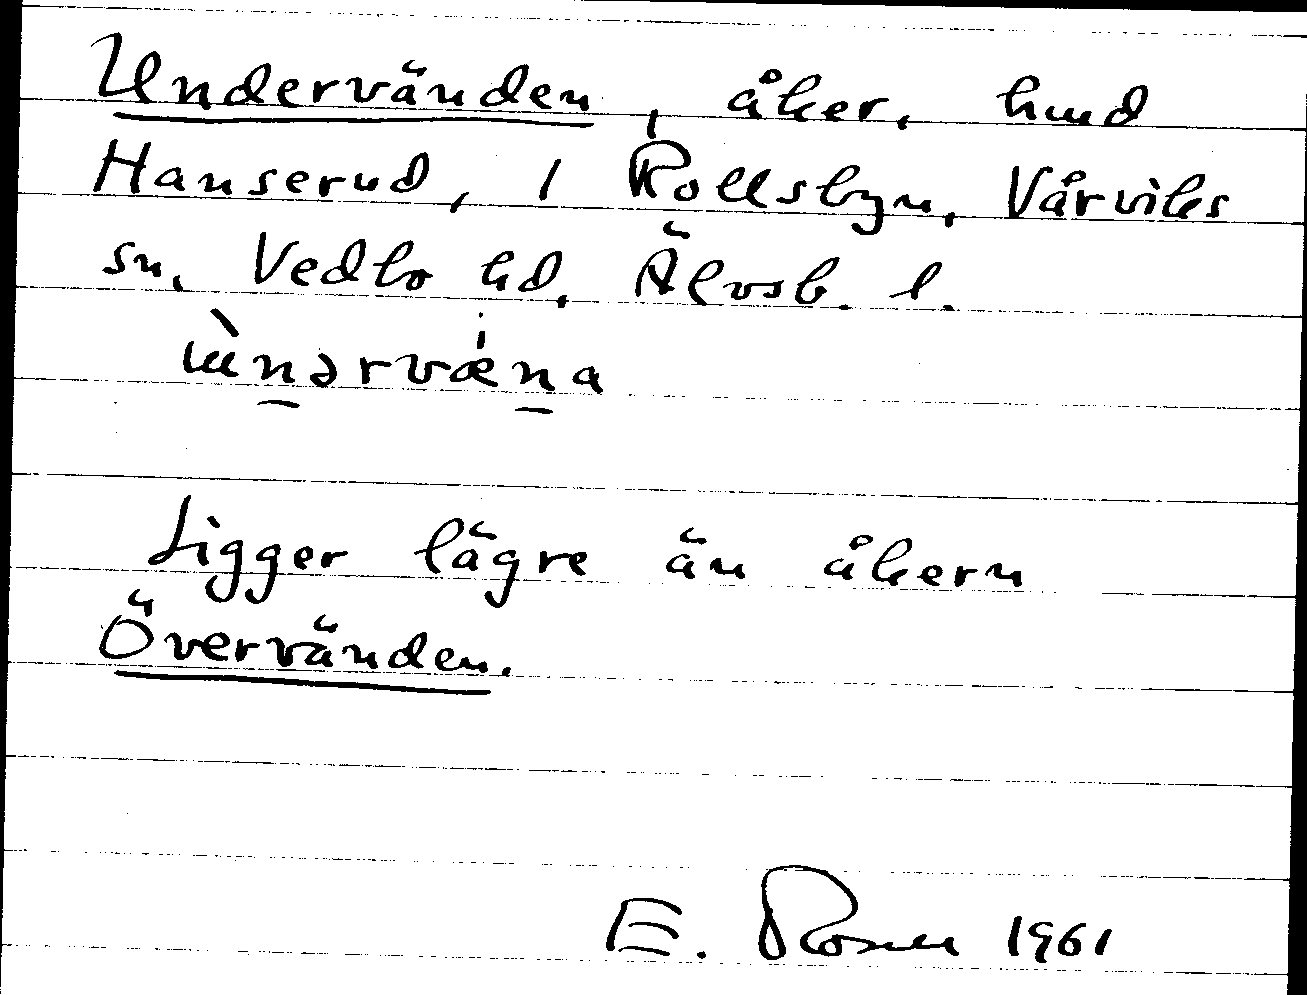 Undervänden, åker, hmd
Hanserud, 1 Rollsbyn, Vårviks
sn. Vedbo hd. Älvsb. l.
ɯ̀nərvæ̍na
Ligger lägre än åkern
Övervänden.
E. Rosell 1961